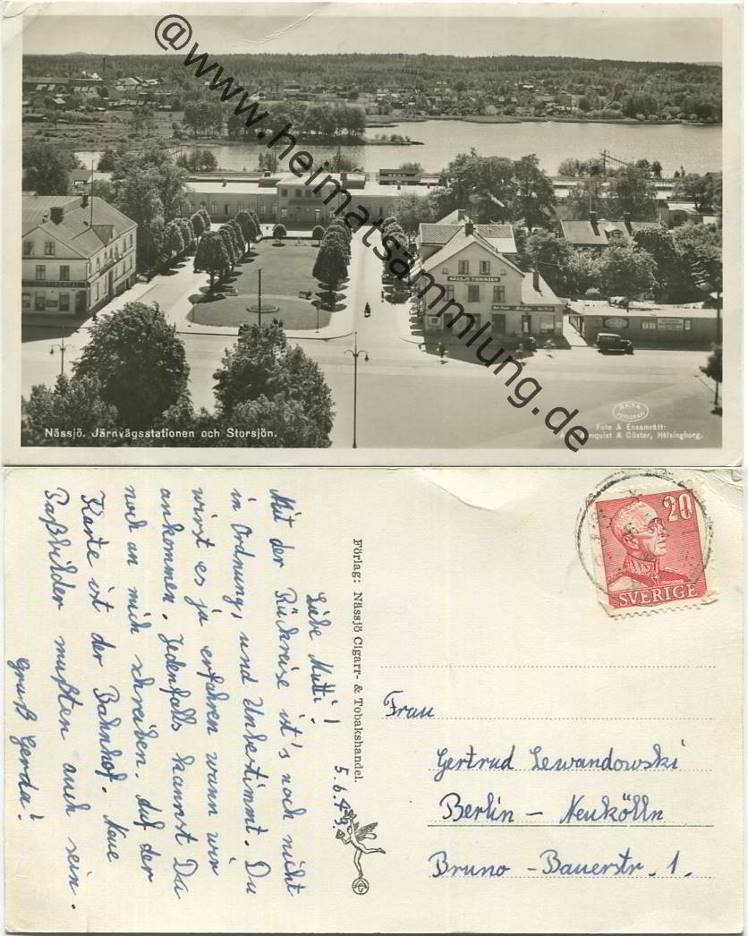 @www.heimatsammlung.de
NÄSSJÖ TIDNINGEN
Nässjö. Järnvägsstationen och Storsjön.
Foto & Ensamrätt:
mquist & Cöster, Hälsingborg.
SVERIGE
20
Förlag: Nässjö Cigarr- & Tobakshandel.
5.6.49.
Liebe Mutti!
Mit der Rückreise ist's noch nicht
in Ordnung, und Unbestimmt. Du
wirst es ja erfahren wann wir
ankommen. Jedenfalls kannst Du
noch an mich schreiben. Auf der
Karte ist der Bahnhof. Neue
Paßbilder mußten auch sein.
Gruß Gerda!
Frau
Gertrud Lewandowski
Berlin – Neukölln
Bruno – Bauerstr. 1.